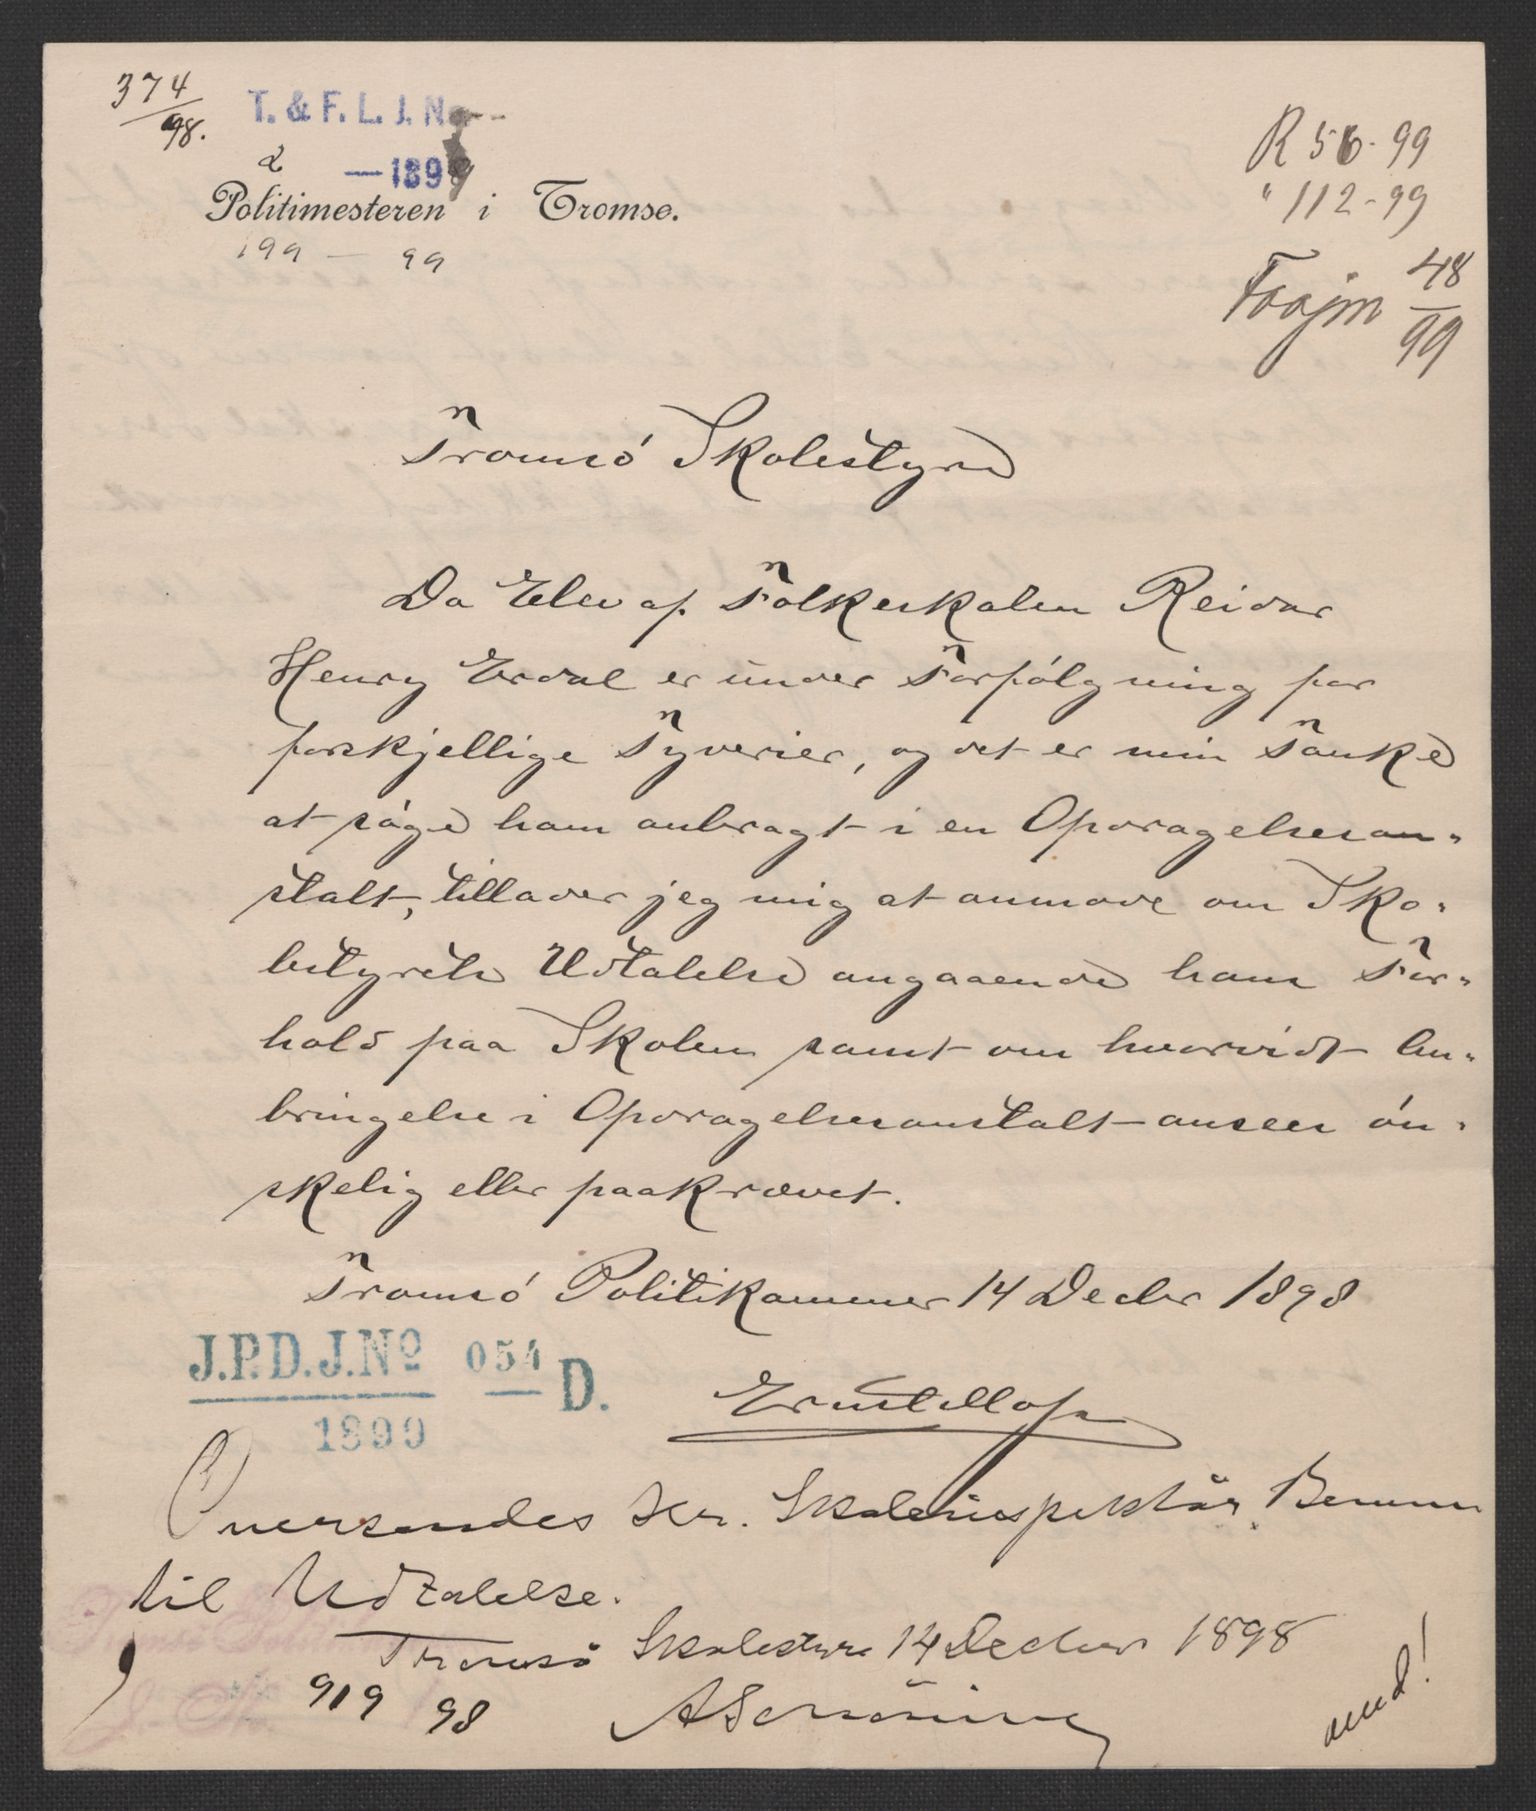 374
98.
T. & F. L. J. No
— 1899
Politimesteren i Tromsø.
199 — 99
R 56-99
" 112-99
48
99
Tromsö Skolestyre
Da Elev af Folkeskolen Reidar
Henry Erdal er under Forfölgning for
forskjellige Tyverier, og det er min Tanke
at söge ham anbragt i en Opdragelsesan-
stalt, tillader jeg mig at anmode om Sko-
lestyrets Udtalelse angaaende hans For-
hold paa Skolen samt om hvorvidt An-
bringelse i Opdragelsesanstalt ansees ön-
skelig eller paakrævet.
Tromsö Politikammer 14 Decbr 1898
J.P.D.J.Nº 054 D.
1899
Oversendes Hr. Skoleinspektör
til Udtalelse.
Tromsö Skolestyre 14 December 1898
919 98
ASchöning